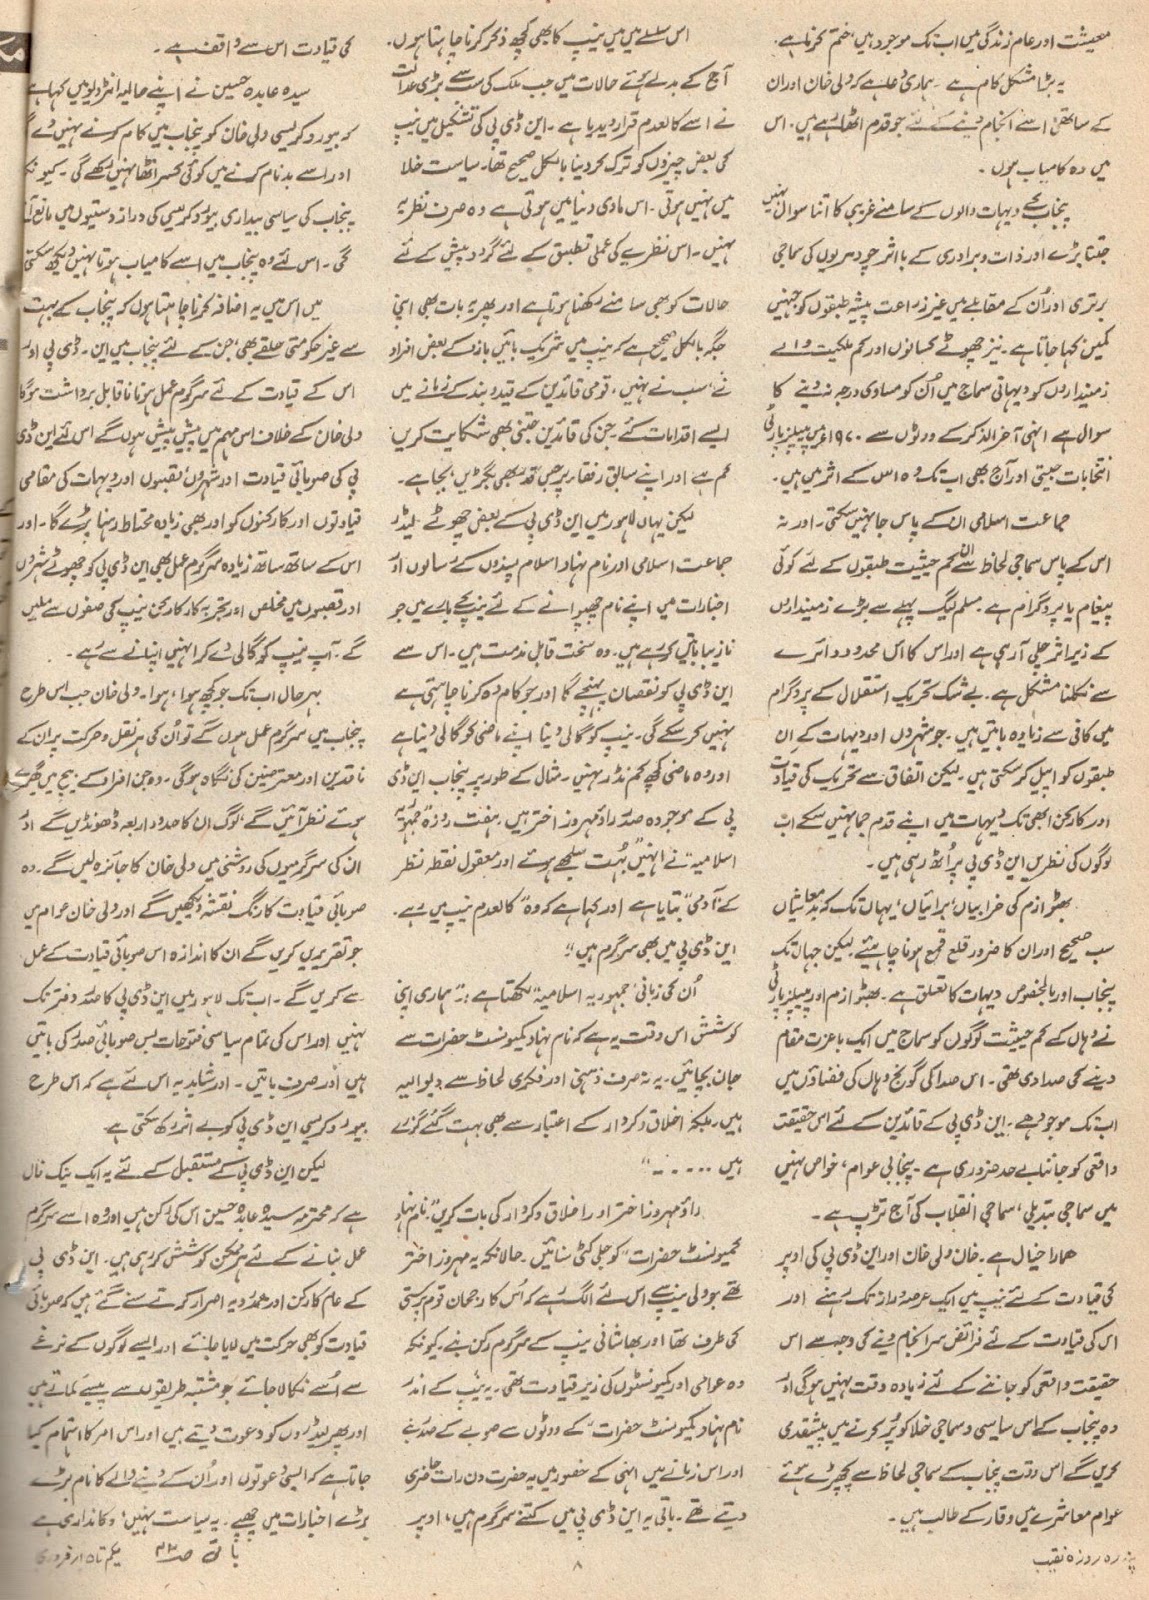 معیشت اور عام زندگی میں اب تک موجود ہیں، ختم کرنا ہے۔
یہ بڑا مشکل کام ہے ۔ ہماری دعا ہے کہ ولی خان اور ان
کے ساتھی اسے انجام دینے کے لئے جو قدم اٹھا رہے ہیں۔ اس
میں وہ کامیاب ہوں ۔
پنجاب کے دیہات والوں کے سامنے غریبی کا اتنا سوال نہیں
جتنا بڑے اور ذات و برادری کے با اثر چودھریوں کی سماجی
برتری اور اُن کے مقابلے میں غیر زراعت پیشہ طبقوں کو جنہیں
کمیں کہا جاتا ہے۔ نیز چھوٹے کسانوں اور کم ملکیت والے
زمینداروں کو دیہاتی سماج میں اُن کو مساوی درجہ نہ دینے کا
سوال ہے انہی آخر الذکر کے ووٹوں سے ۱۹۷۰ء میں پیپلز پارٹی
انتخابات جیتی اور آج بھی اب تک وہ اس کے اثر میں ہیں۔
جماعت اسلامی ان کے پاس جا نہیں سکتی۔ اور نہ
اس کے پاس سماجی لحاظ سے ان کم حیثیت طبقوں کے لئے کوئی
پیغام یا پروگرام ہے۔ مسلم لیگ پہلے سے بڑے زمینداروں
کے زیر اثر چلی آ رہی ہے اور اس کا اس محدود دائرے
سے نکلنا مشکل ہے۔ بے شک تحریک استقلال کے پروگرام
میں کافی سے زیادہ باتیں ہیں۔ جو شہروں اور دیہات کے ان
طبقوں کو اپیل کر سکتی ہیں۔ لیکن اتفاق سے تحریک کی قیادت
اور کارکن ابھی تک دیہات میں اپنے قدم جما نہیں سکے اب
لوگوں کی نظریں این ڈی پی پر اُٹھ رہی ہیں۔
بھٹو ازم کی خرابیاں، برائیاں، یہاں تک کہ بدمعاشیاں
سب صحیح اور ان کا ضرور قلع قمع ہونا چاہیئے لیکن جہاں تک
پنجاب اور بالخصوص دیہات کا تعلق ہے۔ بھٹو ازم اور پیپلز پارٹی
نے وہاں کے کم حیثیت لوگوں کو سماج میں ایک باعزت مقام
دینے کی صدا دی تھی۔ اس صدا کی گونج وہاں کی فضاؤں میں
اب تک موجود ہے۔ این ڈی پی کے قائدین کے لئے اس حقیقت
واقعی کو جاننا بے حد ضروری ہے۔ پنجابی عوام، خواص نہیں
میں سماجی تبدیلی، سماجی انقلاب کی آج تڑپ ہے۔
ہمارا خیال ہے۔ خان ولی خان اور این ڈی پی کی اوپر
کی قیادت کے لئے نیپ میں ایک عرصہ دراز تک رہنے اور
اس کی قیادت کے لئے فرائض سرانجام دینے کی وجہ سے اس
حقیقت واقعی کو جاننے کے لئے زیادہ وقت نہیں ہوگی اور
وہ پنجاب کے اس سیاسی و سماجی خلا کو پُر کرنے میں پیشقدمی
کریں گے اس وقت پنجاب کے سماجی لحاظ سے پچھڑے ہوئے
عوام معاشرے میں وقار کے طالب ہیں۔
اس سلسلے میں میں نیپ کا بھی کچھ ذکر کرنا چاہتا ہوں۔
آج کے بدلے ہوئے حالات میں جب ملک کی سب سے بڑی عدالت
نے اسے کالعدم قرار دیدیا ہے۔ این ڈی پی کی تشکیل میں نیپ
کی بعض چیزوں کو ترک کر دینا بالکل صحیح تھا۔ سیاست خلا
میں نہیں ہوتی۔ اس مادی دنیا میں ہوتی ہے وہ صرف نظریہ
نہیں۔ اس نظریے کی عملی تطبیق کے لئے گرد و پیش کے لئے
حالات کو بھی سامنے رکھنا ہوتا ہے اور پھر یہ بات بھی اپنی
جگہ بالکل صحیح ہے کہ نیپ میں شریک بائیں بازو کے بعض افراد
نے، سب نے نہیں، قومی قائدین کے قید و بند کے زمانے میں
ایسے اقدامات کئے۔ جن کی قائدین جتنی بھی شکایت کریں
کم ہے اور اپنے سابق رفقاء پر جس قدر بھی بگڑیں، بجا ہے۔
لیکن یہاں لاہور میں این ڈی پی کے بعض چھوٹے لیڈر
جماعت اسلامی اور نام نہاد اسلام پسندوں کے رسالوں اور
اخبارات میں اپنے نام چھپوانے کے لئے نیپ کے بارے میں جو
نازیبا باتیں کر رہے ہیں۔ وہ سخت قابل مذمت ہیں۔ اس سے
این ڈی پی کو نقصان پہنچے گا اور جو کام وہ کرنا چاہتی ہے
نہیں کر سکے گی۔ نیپ کو گالی دینا اپنے ماضی کو گالی دینا ہے
اور وہ ماضی کچھ کم نڈر نہیں۔ مثال کے طور پر پنجاب این ڈی
پی کے موجودہ صدر راؤ مہروز اختر ہیں۔ ہفت روزہ "جمہوریہ
اسلامیہ" نے انہیں "بہت سلجھے ہوئے اور معقول نقطہ نظر
کے آدمی" بتایا ہے اور کہا ہے کہ وہ "کالعدم نیپ میں رہے۔
این ڈی پی میں بھی سرگرم ہیں"
اُن کی زبانی "جمہوریہ اسلامیہ" لکھتا ہے:۔ "ہماری اپنی
کوشش اس وقت یہ ہے کہ نام نہاد کمیونسٹ حضرات سے
جان بچائیں۔ یہ نہ صرف ذہنی اور فکری لحاظ سے دیوالیہ
ہیں۔ بلکہ اخلاق و کردار کے اعتبار سے بھی بہت گئے گزرے
ہیں ۔۔۔۔۔"
راؤ مہروز اختر اور اخلاق و کردار کی بات کریں "نام نہاد
کمیونسٹ حضرات" کو جلی کٹی سنائیں۔ حالانکہ یہ مہروز اختر
تھے جو ولی نیپ سے اس لئے الگ رہے کہ اُس کا رجحان قوم پرستی
کی طرف تھا اور بھاشانی نیپ کے سرگرم رکن بنے۔ کیونکہ
وہ عوامی اور کمیونسٹوں کی زیر قیادت تھی۔ یہ نیپ کے اندر
نام نہاد کمیونسٹ حضرات" کے ووٹوں سے صوبے کے صدر بنے
اور اس زمانے میں انہی کے حضور میں یہ حضرت دن رات حاضری
دیتے تھے۔ باقی یہ این ڈی پی میں کتنے سرگرم ہیں، اوپر
کی قیادت اس سے واقف ہے۔
سیدہ عابدہ حسین نے اپنے حالیہ انٹرویو میں کہا ہے
کہ بیوروکریسی ولی خان کو پنجاب میں کام کرنے نہیں دے گی
اور اسے بدنام کرنے میں کوئی کسر اٹھا نہیں رکھے گی۔ کیونکہ
پنجاب کی سیاسی بیداری بیوروکریسی کی دراز دستیوں میں مانع آئے
گی۔ اس لئے وہ پنجاب میں اسے کامیاب ہوتا نہیں دیکھ سکتی
میں اس میں یہ اضافہ کرنا چاہتا ہوں کہ پنجاب کے بہت
سے غیر حکومتی حلقے بھی، جن کے لئے پنجاب میں این ۔ ڈی پی اور
اس کے قیادت کے لئے سرگرم عمل ہونا ناقابل برداشت ہوگا
ولی خان کے خلاف اس مہم میں پیش پیش ہوں گے اس لئے این ڈی
پی کی صوبائی قیادت اور شہروں، قصبوں اور دیہات کی مقامی
قیادتوں اور کارکنوں کو اور بھی زیادہ محتاط رہنا پڑے گا۔ اور
اس کے ساتھ ساتھ زیادہ سرگرم عمل بھی این ڈی پی کو چھوٹے شہروں
اور قصبوں میں مخلص اور تجربہ کار کارکن نیپ کی صفوں سے ملیں
گے۔ آپ نیپ کو گالی دے کر انہیں اپنانے سے رہے۔
بہرحال اب تک جو کچھ ہوا، ہوا۔ ولی خان جب اس طرح
پنجاب میں سرگرم عمل ہوں گے تو اُن کی ہر نقل و حرکت پر ان کے
ناقدین اور معترضین کی نگاہ ہوگی۔ وہ جن افراد کے بیچ میں گھرے
ہوئے نظر آئیں گے، لوگ ان کا حدود اربعہ ڈھونڈیں گے اور
ان کی سرگرمیوں کی روشنی میں ولی خان کا جائزہ لیں گے۔ وہ
صوبائی قیادت کا رنگ نقشہ دیکھیں گے اور ولی خان عوام میں
جو تقریریں کریں گے ان کا اندازہ اس صوبائی قیادت کے عمل
سے کریں گے۔ اب تک لاہور میں این ڈی پی کا صدر دفتر تک
نہیں اور اس کی تمام سیاسی فتوحات بس صوبائی صدر کی باتیں
ہیں اور صرف باتیں۔ اور شاید یہ اس لئے ہے کہ اس طرح
بیوروکریسی این ڈی پی کو بے اثر رکھ سکتی ہے
لیکن این ڈی پی کے مستقبل کے لئے یہ ایک نیک فال
ہے کہ محترمہ سیدہ عابدہ حسین اس کی رکن ہیں اور وہ اسے سرگرم
عمل بنانے کے لئے ہر ممکن کوشش کر رہی ہیں۔ این ڈی پی
کے عام کارکن اور ہمدرد یہ اصرار کرتے سنے گئے ہیں کہ صوبائی
قیادت کو بھی حرکت میں لایا جائے اور ایسے لوگوں کے نرغے
سے اُسے نکالا جائے جو مشتبہ طریقوں سے پیسے کماتے ہیں
اور پھر لیڈروں کو دعوت دیتے ہیں اور اس امر کا اہتمام کیا
جاتا ہے کہ ایسی دعوتوں اور اُن کے دینے والے کا نام بڑے
بڑے اخبارات میں چھپے۔ یہ سیاست نہیں، دکانداری ہے
باقی صہ ۲۳
پندرہ روزہ نقیب
۸
یکم تا ۱۵ فروری